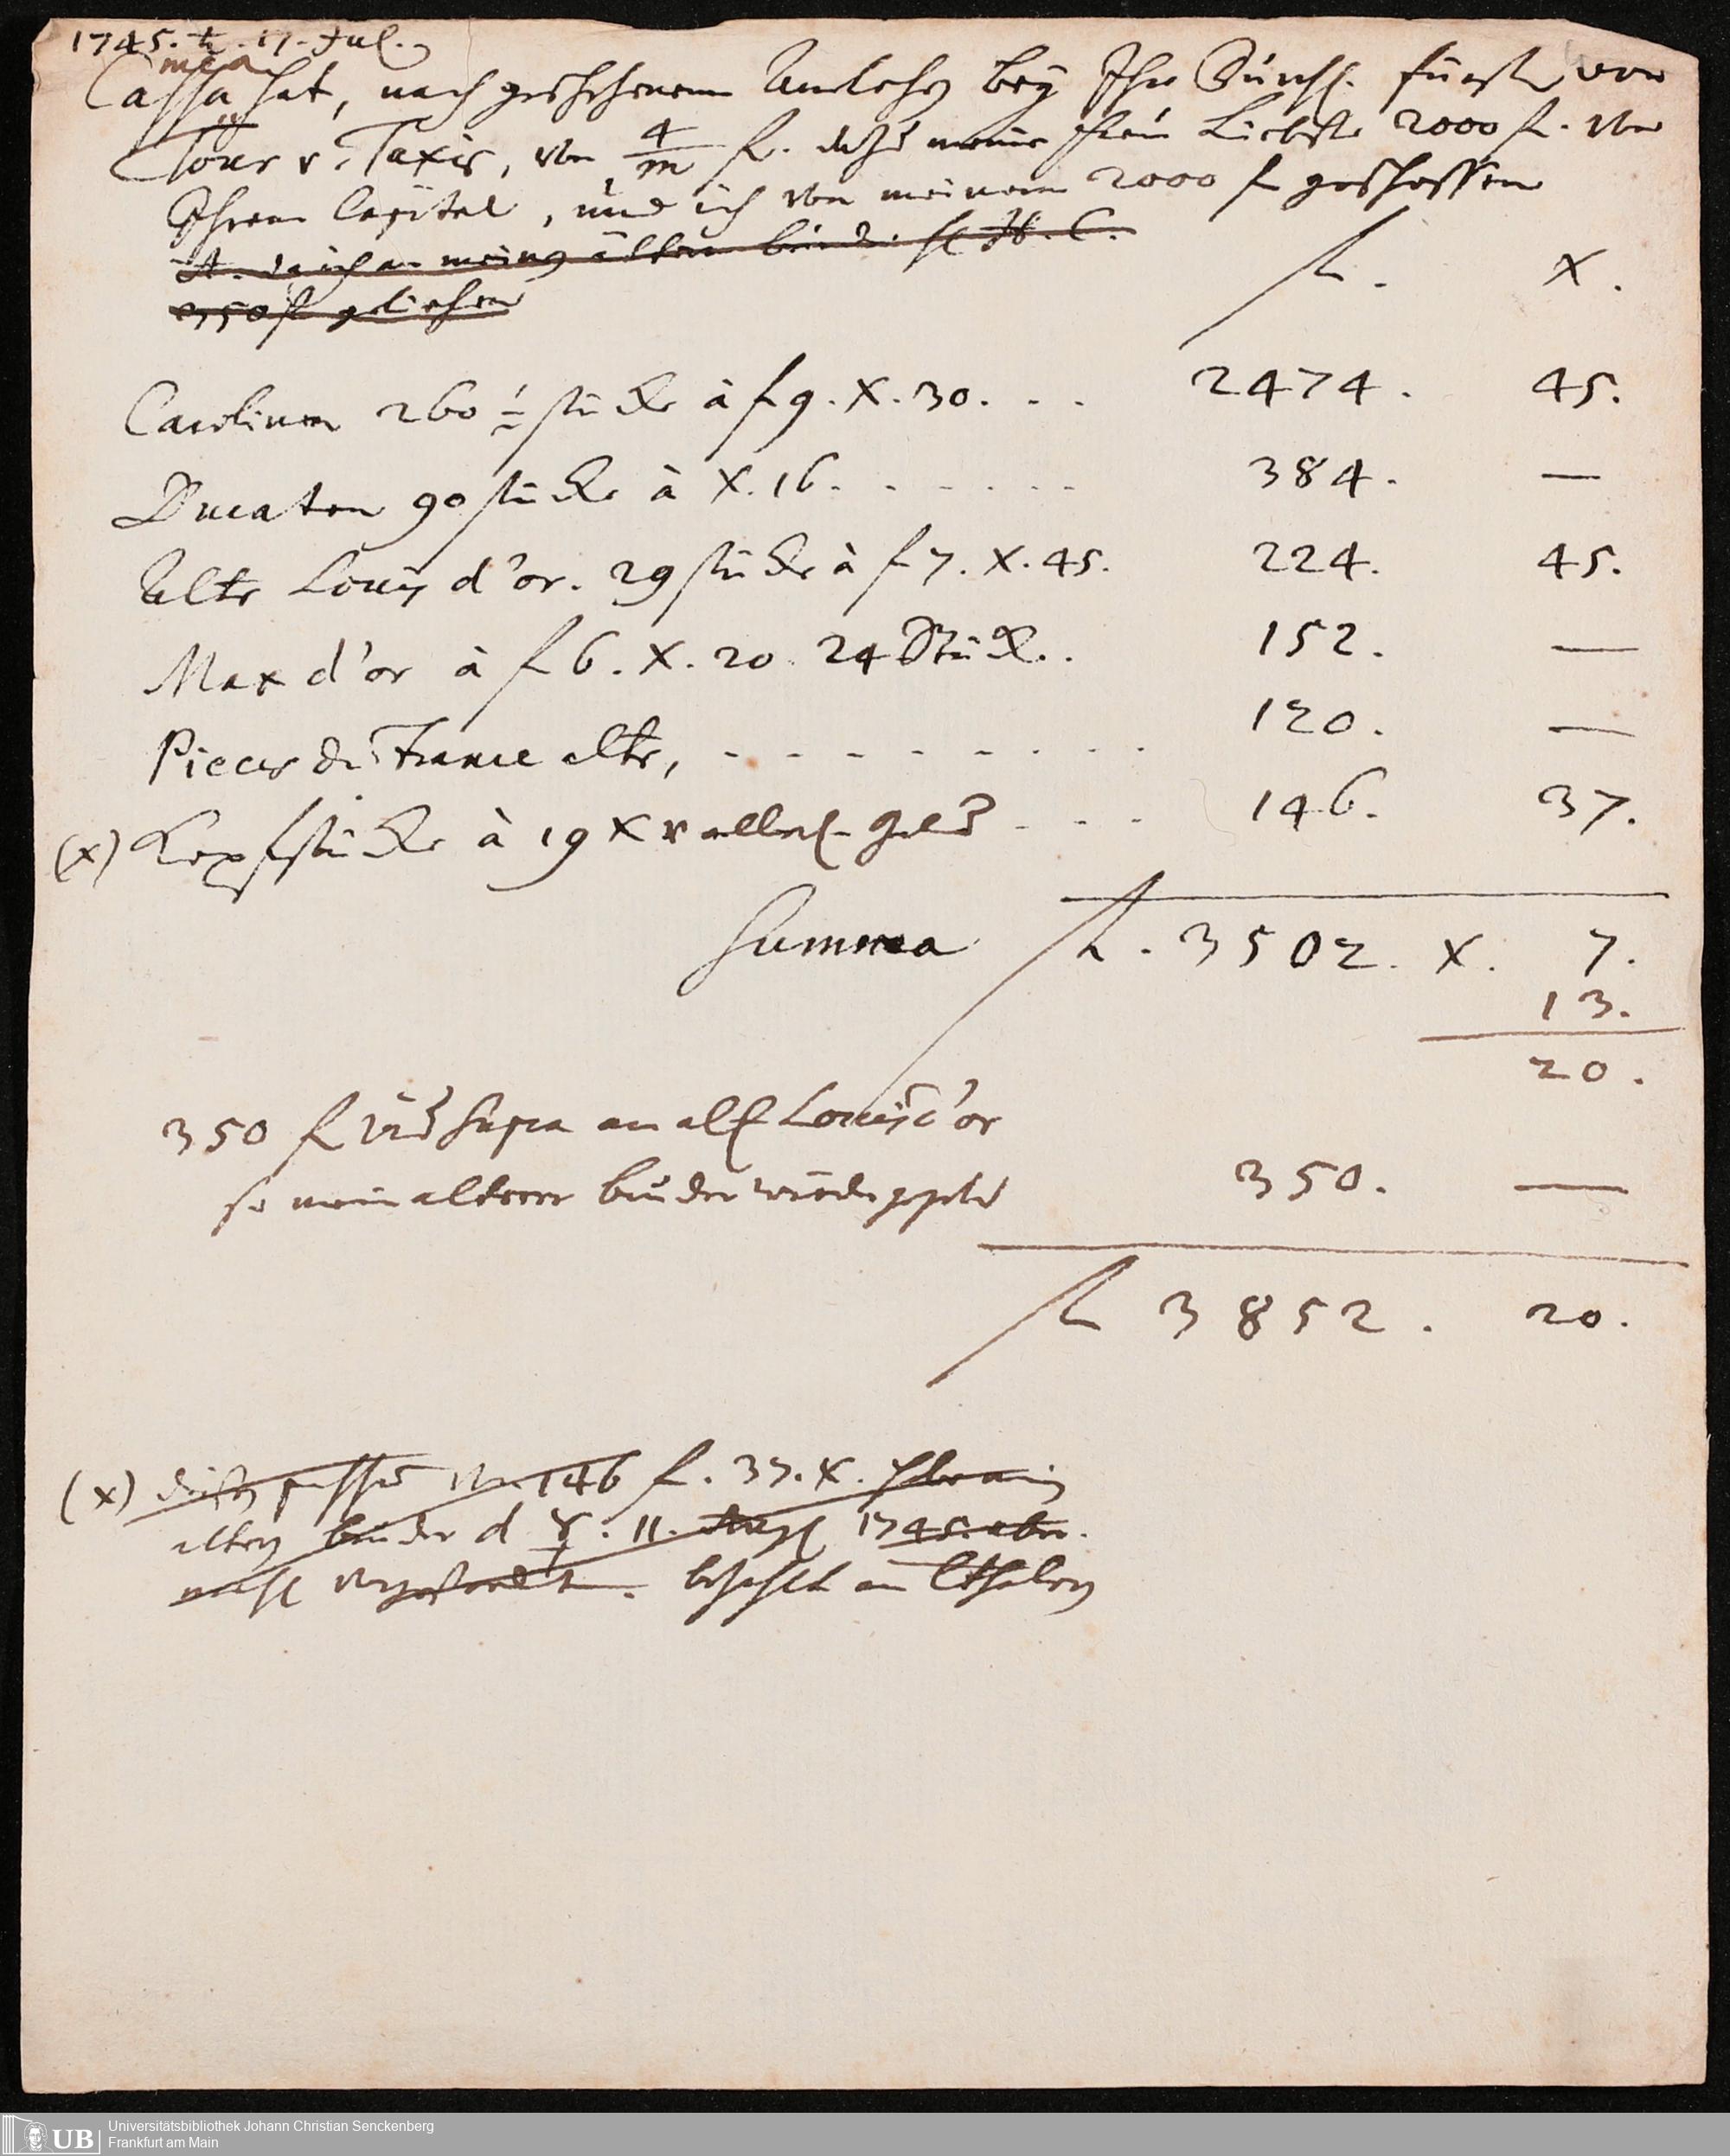 1745. ♄. 17. Jul.
mea
Cassa hat, nach geschehenem Anlehn bey Ihr Durchl. Fürst von
Tour v. Taxis, von 4/m f. dazu meine Frau Liebste 2000 f. von
Ihrem Capital, und ich von meinem 2000 f geschossen
350 f geliehen
f. X.
Carolinen 260 ½ stücke à f 9. X. 30. . . 2474. 45.
Ducaten 90 stücke à X. 16. . . . . . . 384. —
Alte Louis d'or. 29 stücke à f 7. X. 45. 224. 45.
Max d'or à f 6. X. 20. 24 Stück. . 152. —
Pieces de France alte, - - - - - - - - 120. —
(x) Kopfstücke à 19 X v allerl. Geld - - - 146. 37.
Summa f. 3502. X. 7.
13.
20.
350 f vid supra an alt Louis d'or
so mein alterer bruder 350. —
f 3852. 20.
(x) 146 f. 37. X.
alten bruder d ☿. 11. Aug 1745. aber.
bezahlt an
UB Universitätsbibliothek Johann Christian Senckenberg
Frankfurt am Main